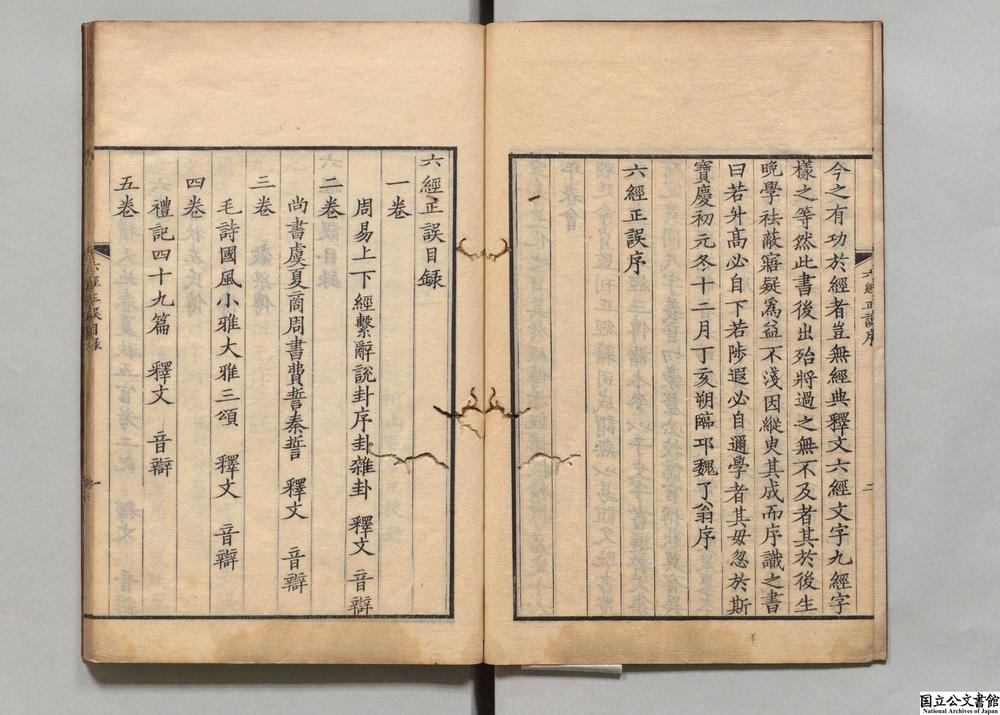 今之有功於經者豈無經典釋文六經文字九經字
樣之等然此書後出殆將過之無不及者其於後生
晚學祛蔽寤疑爲益不淺因縱臾其成而序識之書
曰若升高必自下若陟遐必自邇學者其毋忽於斯
寶慶初元冬十二月丁亥朔臨邛魏了翁序
六經正誤序
六經正誤序
二
六經正誤目録
一卷
周易上下經繫辭說卦序卦雜卦 釋文 音辯
二卷
尚書虞夏商周書費誓秦誓 釋文 音辯
三卷
毛詩國風小雅大雅三頌 釋文 音辯
四卷
禮記四十九篇 釋文 音辯
五卷
六經正誤目録
一
国立公文書館
National Archives of Japan